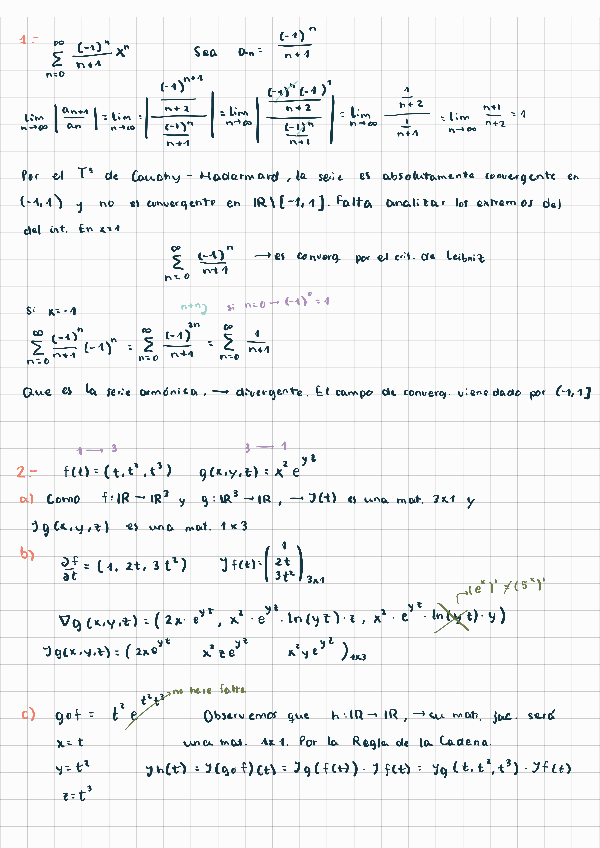 1.- ∞∑n=0 (-1)^n/(n+1) x^n Sea an = (-1)^n/(n+1)
lim n→∞ |an+1/an| = lim n→∞ |((-1)^(n+1)/(n+2))/((-1)^n/(n+1))| = lim n→∞ |((-1)^n(-1)^1/(n+2))/((-1)^n/(n+1))| = lim n→∞ (1/(n+2))/(1/(n+1)) = lim n→∞ (n+1)/(n+2) = 1
Por el Tª de Cauchy-Hadarmard, la serie es absolutamente convergente en
(-1,1) y no es convergente en IR\[-1,1]. Falta analizar los extremos del
del int. En x=1
∞∑n=0 (-1)^n/(n+1) → es converg por el crit. de Leibniz
Si x=-1 n+n si n=0 → (-1)^0 = 1
∞∑n=0 (-1)^n/(n+1) (-1)^n = ∞∑n=0 (-1)^2n/(n+1) = ∞∑n=0 1/(n+1)
Que es la serie armónica. → divergente. El campo de converg. viene dado por (-1,1]
1 → 3 3 → 1
2.- f(t) = (t, t², t³) g(x,y,z) = x² e^yz
a) Como f: IR → IR³ y g: IR³ → IR, → J(t) es una mat. 3x1 y
Jg(x,y,z) es una mat. 1x3
b) ∂f/∂t = (1, 2t, 3t²) Jf(t) = (1 2t 3t²)3x1
(e^x)' ≠ (5^x)'
∇g(x,y,z) = (2x·e^yz, x²·e^yz·ln(yz)·z, x²·e^yz·ln(yz)·y)
Jg(x,y,z) = (2xe^yz x²ze^yz x²ye^yz)1x3
no hace falta
c) gof = t² e^t²t³ Observemos que h: IR → IR, → su mat. jac. será
x=t una mat. 1x1. Por la Regla de la Cadena.
y=t² Jh(t) = J(gof)(t) = Jg(f(t))·Jf(t) = Jg(t, t², t³)·Jf(t)
z=t³